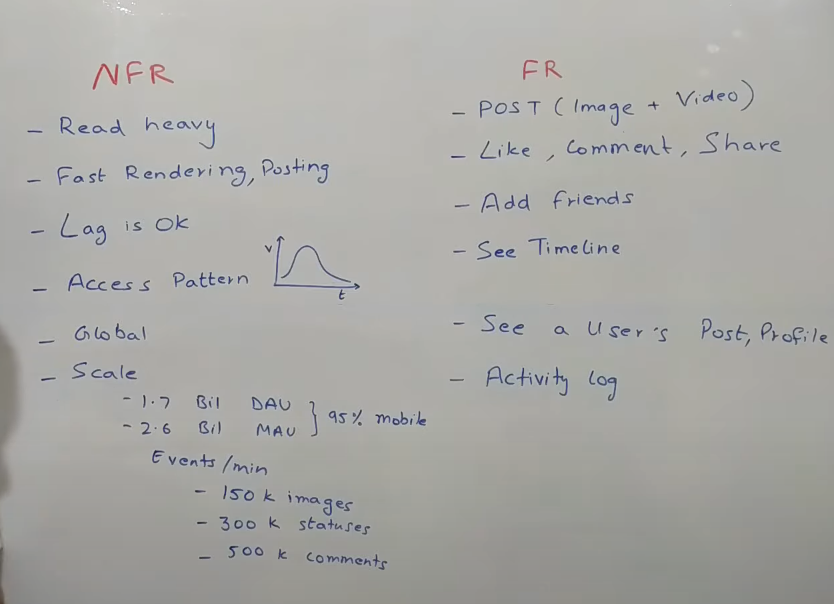 NFR
- Read heavy
- Fast Rendering, Posting
- Lag is Ok
- Access Pattern
v
t
- Global
- Scale
- 1.7 Bil DAU
- 2.6 Bil MAU
95% mobile
Events/min
- 150 k images
- 300 k statuses
- 500 k comments
FR
- POST (Image + Video)
- Like, Comment, Share
- Add friends
- See Timeline
- See a User's Post, Profile
- Activity log